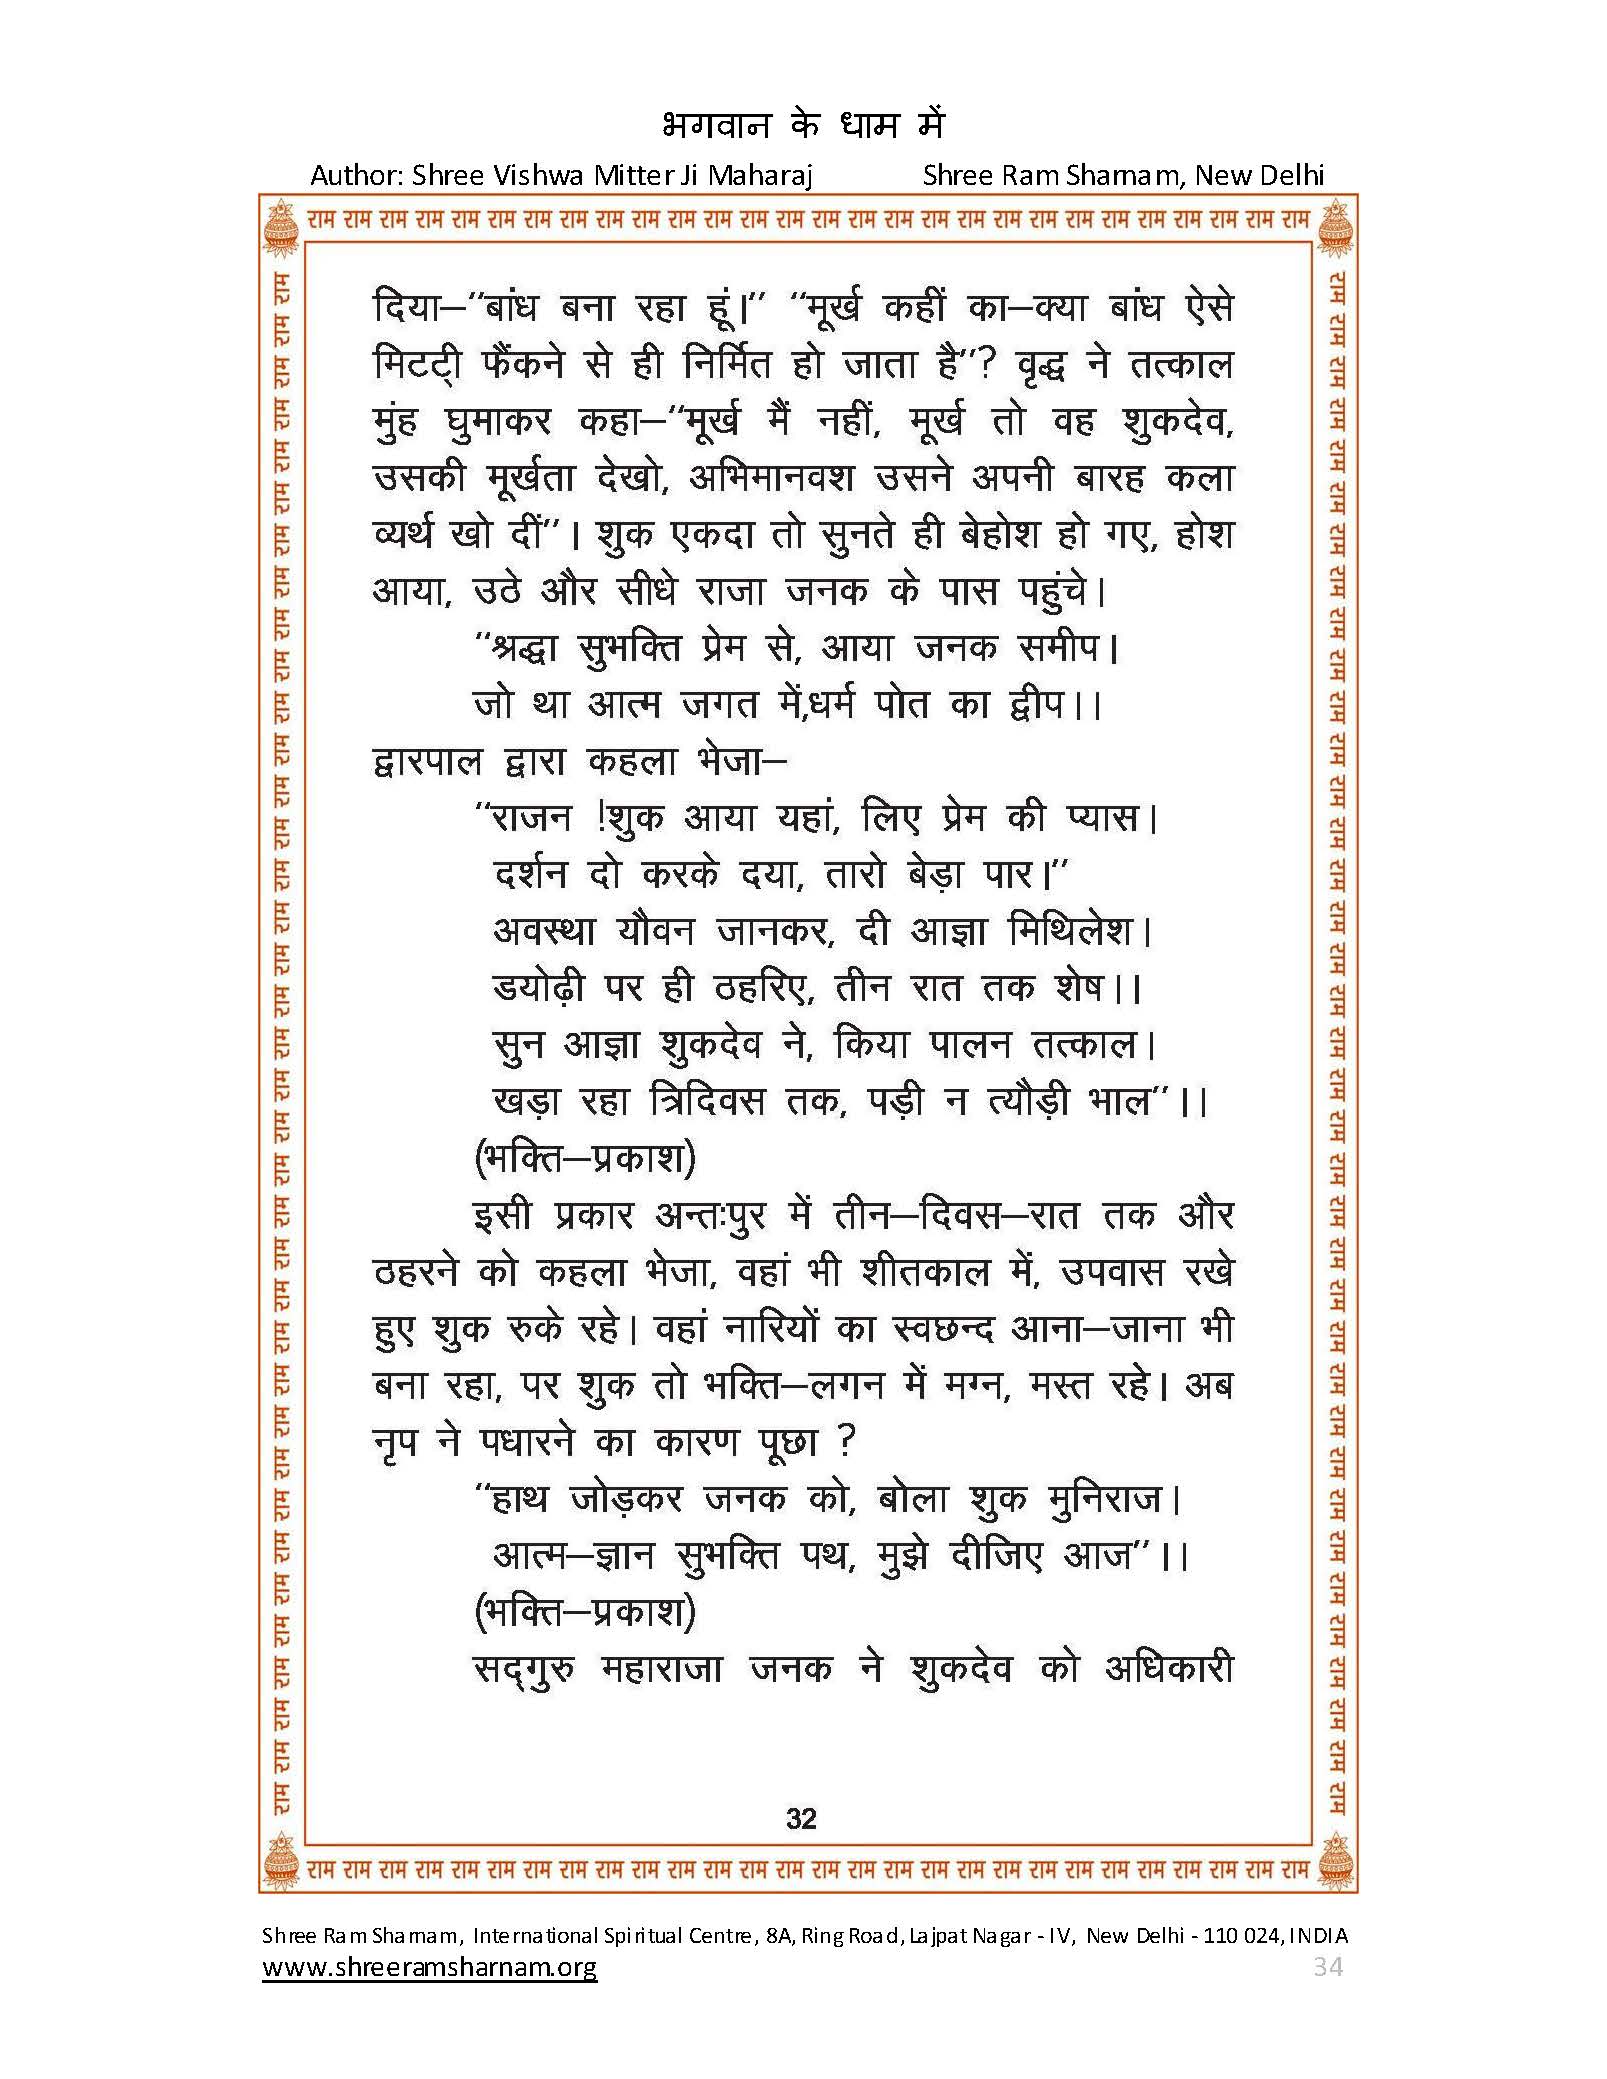 भगवान के धाम में
Author: Shree Vishwa Mitter Ji Maharaj Shree Ram Sharnam, New Delhi
राम राम राम राम राम राम राम राम राम राम राम राम राम राम राम राम राम राम राम राम राम राम राम राम राम राम राम राम
दिया–’’बांध बना रहा हूं।’’ ‘‘मूर्ख कहीं का–क्या बांध ऐसे
मिटट्ी फैंकने से ही निर्मित हो जाता है’’? वृद्ध ने तत्काल
मुंह घुमाकर कहा–‘‘मूर्ख मैं नहीं, मूर्ख तो वह शुकदेव,
उसकी मूर्खता देखो, अभिमानवश उसने अपनी बारह कला
व्यर्थ खो दीं’’। शुक एकदा तो सुनते ही बेहोश हो गए, होश
आया, उठे और सीधे राजा जनक के पास पहुंचे।
‘‘श्रद्धा सुभक्ति प्रेम से, आया जनक समीप।
जो था आत्म जगत में,धर्म पोत का द्वीप।।
द्वारपाल द्वारा कहला भेजा–
‘‘राजन !शुक आया यहां, लिए प्रेम की प्यास।
दर्शन दो करके दया, तारो बेड़ा पार।’’
अवस्था यौवन जानकर, दी आज्ञा मिथिलेश।
डयोढ़ी पर ही ठहरिए, तीन रात तक शेष।।
सुन आज्ञा शुकदेव ने, किया पालन तत्काल।
खड़ा रहा त्रिदिवस तक, पड़ी न त्यौड़ी भाल’’।।
(भक्ति–प्रकाश)
इसी प्रकार अन्तःपुर में तीन–दिवस–रात तक और
ठहरने को कहला भेजा, वहां भी शीतकाल में, उपवास रखे
हुए शुक रुके रहे। वहां नारियों का स्वछन्द आना–जाना भी
बना रहा, पर शुक तो भक्ति–लगन में मग्न, मस्त रहे। अब
नृप ने पधारने का कारण पूछा ?
‘‘हाथ जोड़कर जनक को, बोला शुक मुनिराज।
आत्म–ज्ञान सुभक्ति पथ, मुझे दीजिए आज’’।।
(भक्ति–प्रकाश)
सद्गुरु महाराजा जनक ने शुकदेव को अधिकारी
32
राम राम राम राम राम राम राम राम राम राम राम राम राम राम राम राम राम राम राम राम राम राम राम राम राम राम राम राम
Shree Ram Sharnam, International Spiritual Centre, 8A, Ring Road, Lajpat Nagar - IV, New Delhi - 110 024, INDIA
www.shreeramsharnam.org 34